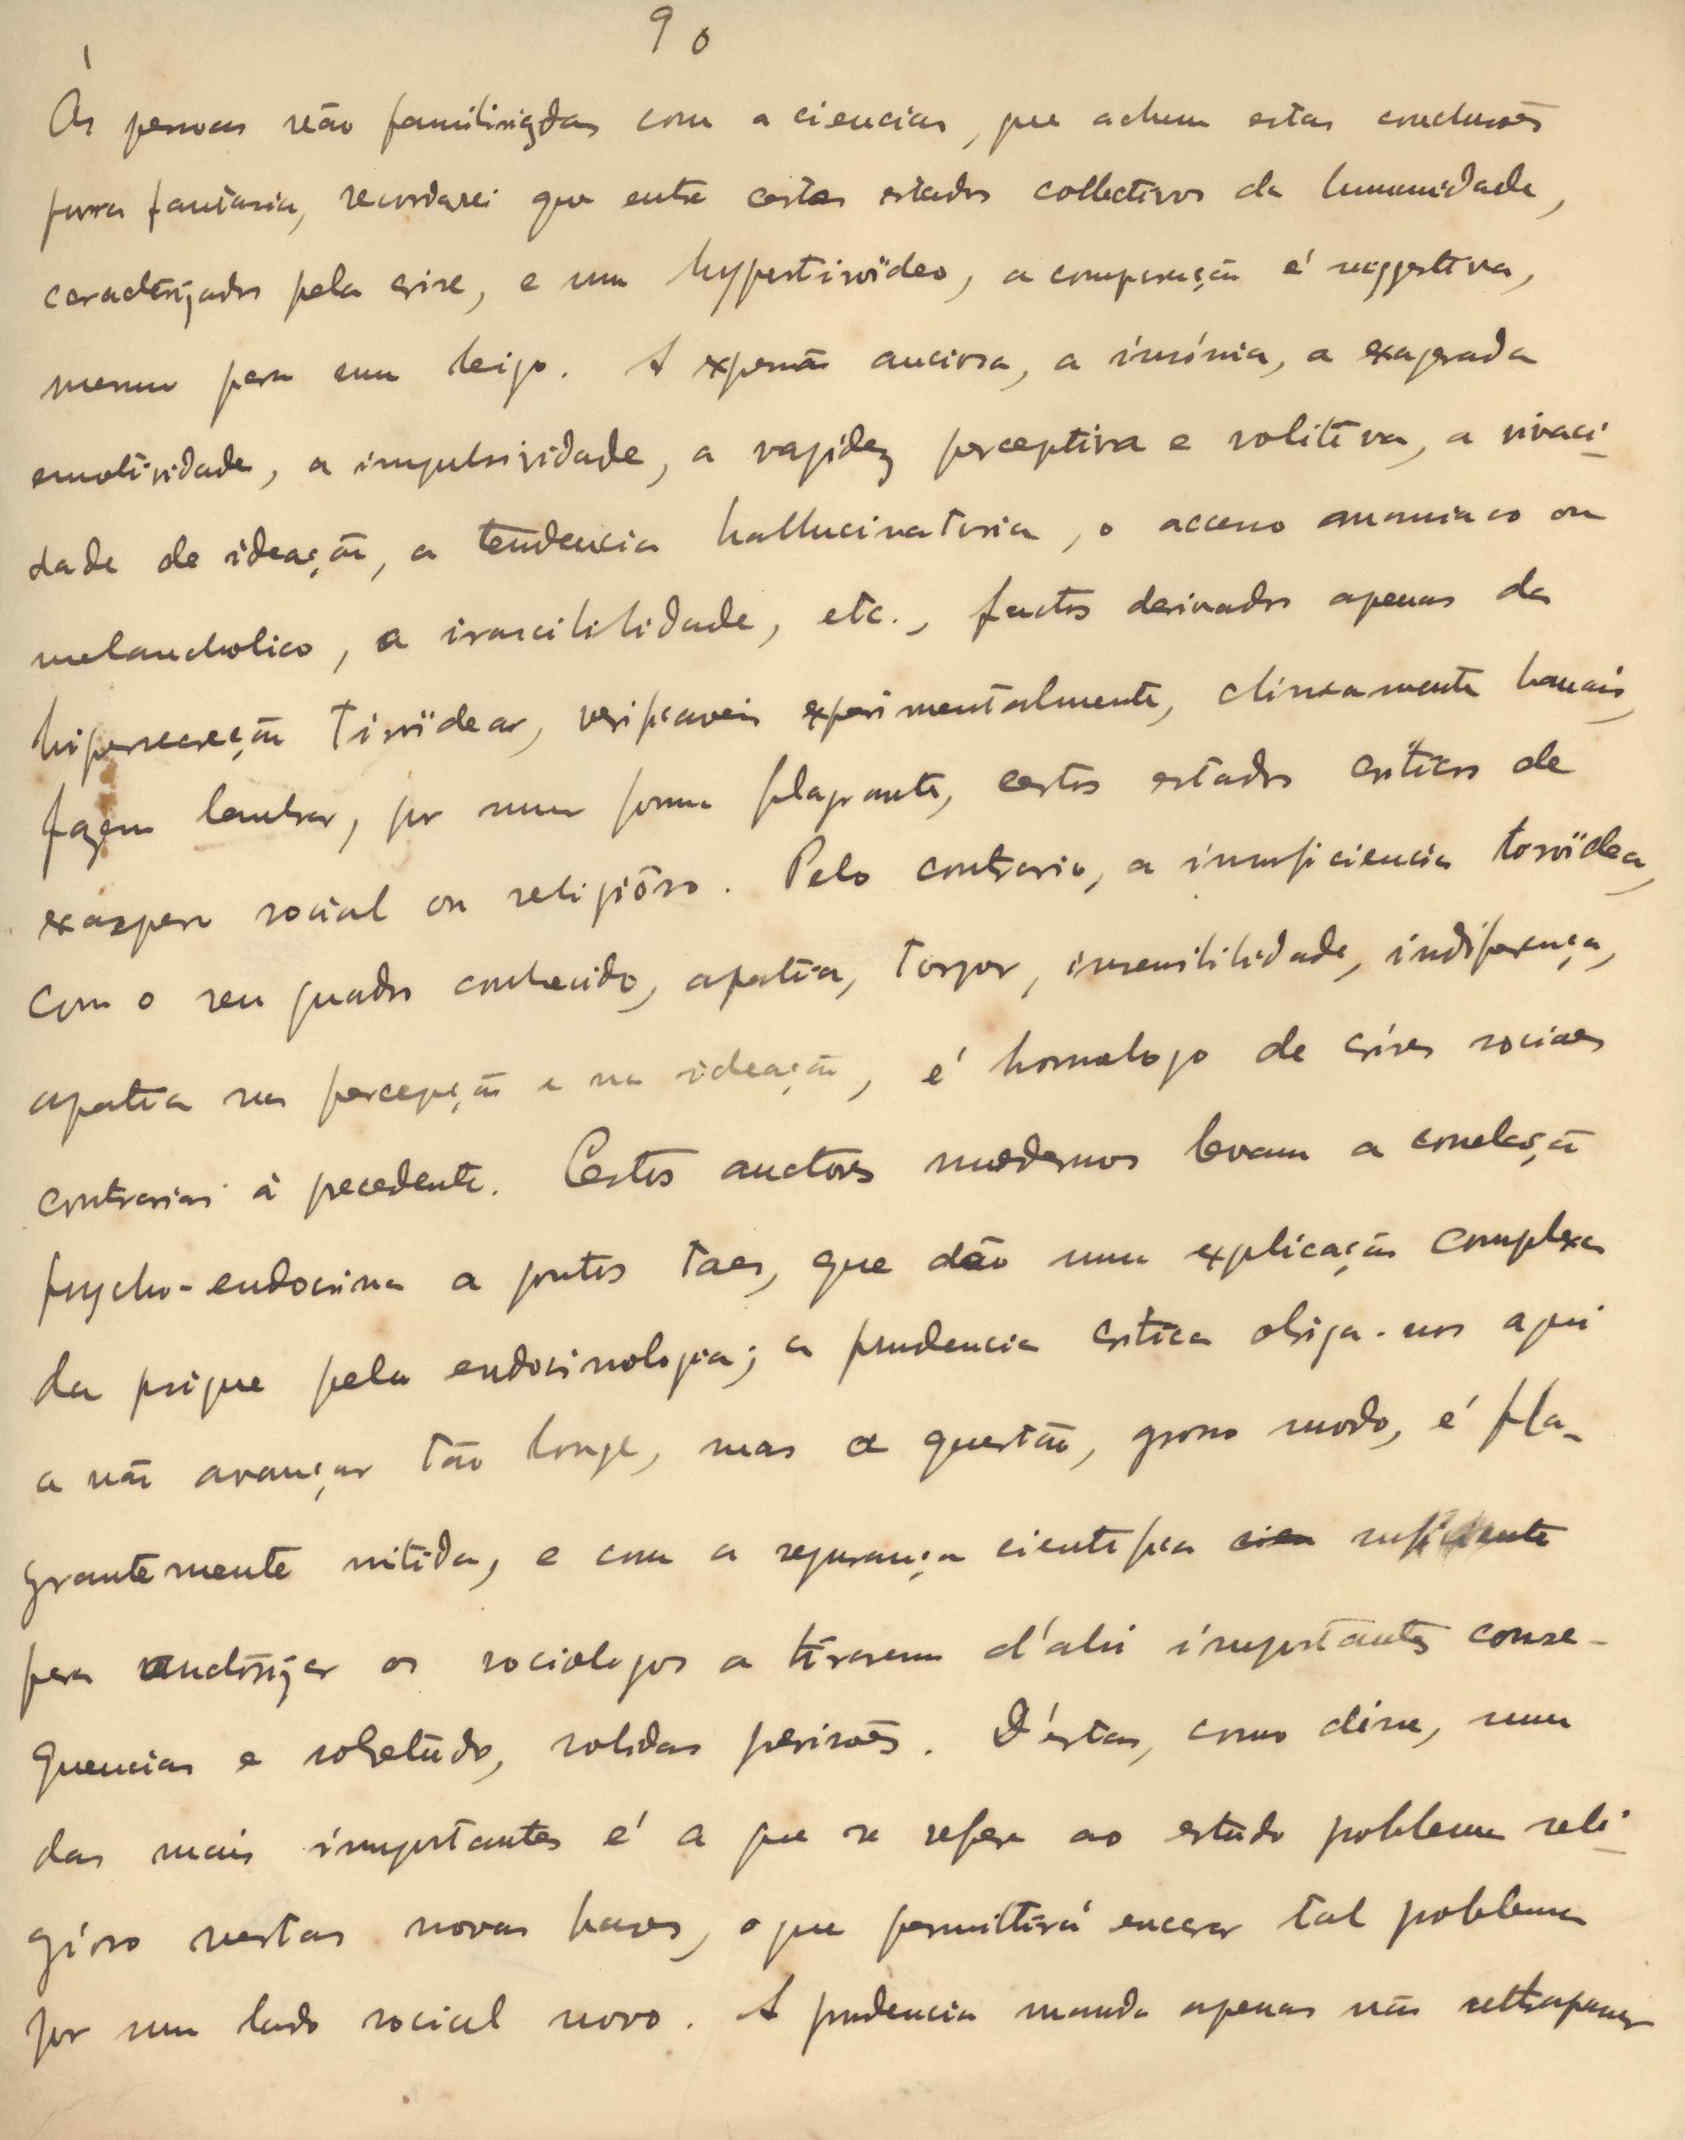 90
Às pessoas não familirizdas com a ciencias, que achem estas conclusões
pura fantasia, recordarei que entre certos estados collectivos da humanidade,
caracterizados pela crise, e um hypertiroïdeo, a comparação é suggestiva,
mesmo para um leigo. A expressão anciosa, a insónia, a exagerada
emotividade, a impulsividade, a rapidez perceptiva e volitiva, a vivaci-
dade de ideação, a tendencia hallucinatoria, o accesso maniaco ou
melancholico, a irascibilidade, etc., factos derivados apenas da
hipersecreção tiroïdear, verificaveis experimentalmente, clinicamente banais,
fazem lembrar, por uma forma flagrante, certos estados criticos de
exaspero social ou religiôso. Pelo contrario, a insuficiencia toroïdea,
com o seu quadro conhecido, apatia, torpor, insensibilidade, indiferença,
apatia na percepção e na ideação, é homologo de crises sociaes
contrarias á precedente. Certos auctores modernos levam a correlação
psycho-endocrina a pontos taes, que dão uma explicação complexa
da psique pela endocrinologia; a prudencia critica obriga-nos aqui
a não avançar tão longe, mas a questão, grosso modo, é fla-
grantemente nitida, e com a segurança cientifica suficiente
para auctorizar os sociologos a tirarem d'ahi importantes conse-
quencias e sobretudo, solidas previsões. D'estas, como disse, uma
das mais importantes é a que se refere ao estudo problema reli-
gioso nestas novas bases, o que permittirá encarar tal problema
por um lado social novo. A prudencia manda apenas não ultrapassar